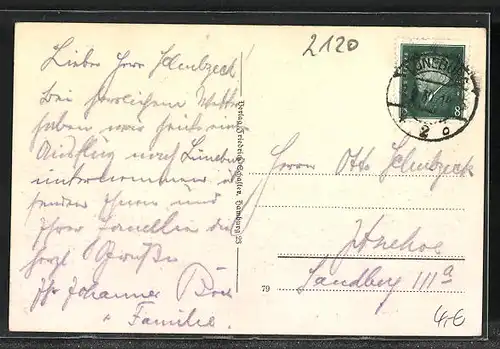 2120
Lieber Herr Schubzeck
bei herrlichem Wetter
haben wir heute einen
Ausflug nach Lüneburg
unternommen u
senden Ihnen und
Ihrer Familie die
herzl Grüße
Ihr Johannes
u Familie.
Verlag Friederich Schaller, Hamburg 25
LÜNEBURG
8
Herrn Otto Schubzeck
Itzehoe
Sandberg 111a
79